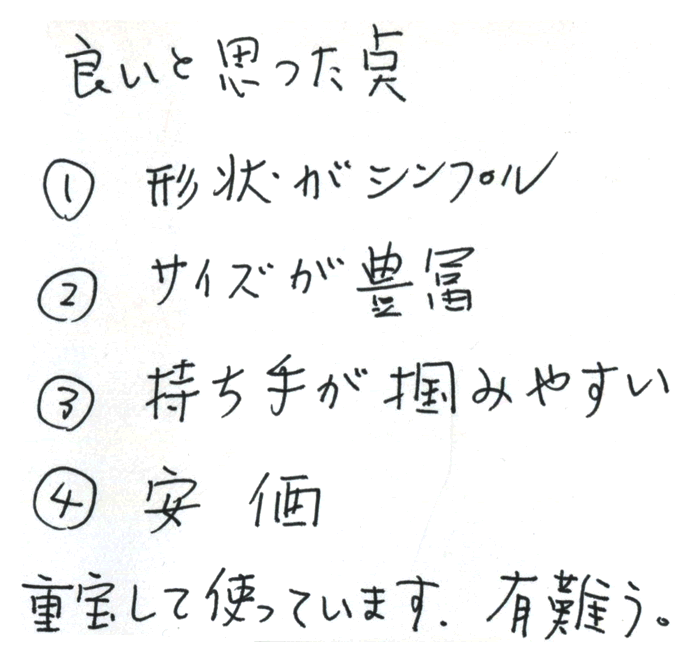 良いと思った点
① 形状がシンプル
② サイズが豊富
③ 持ち手が掴みやすい
④ 安価
重宝して使っています. 有難う。